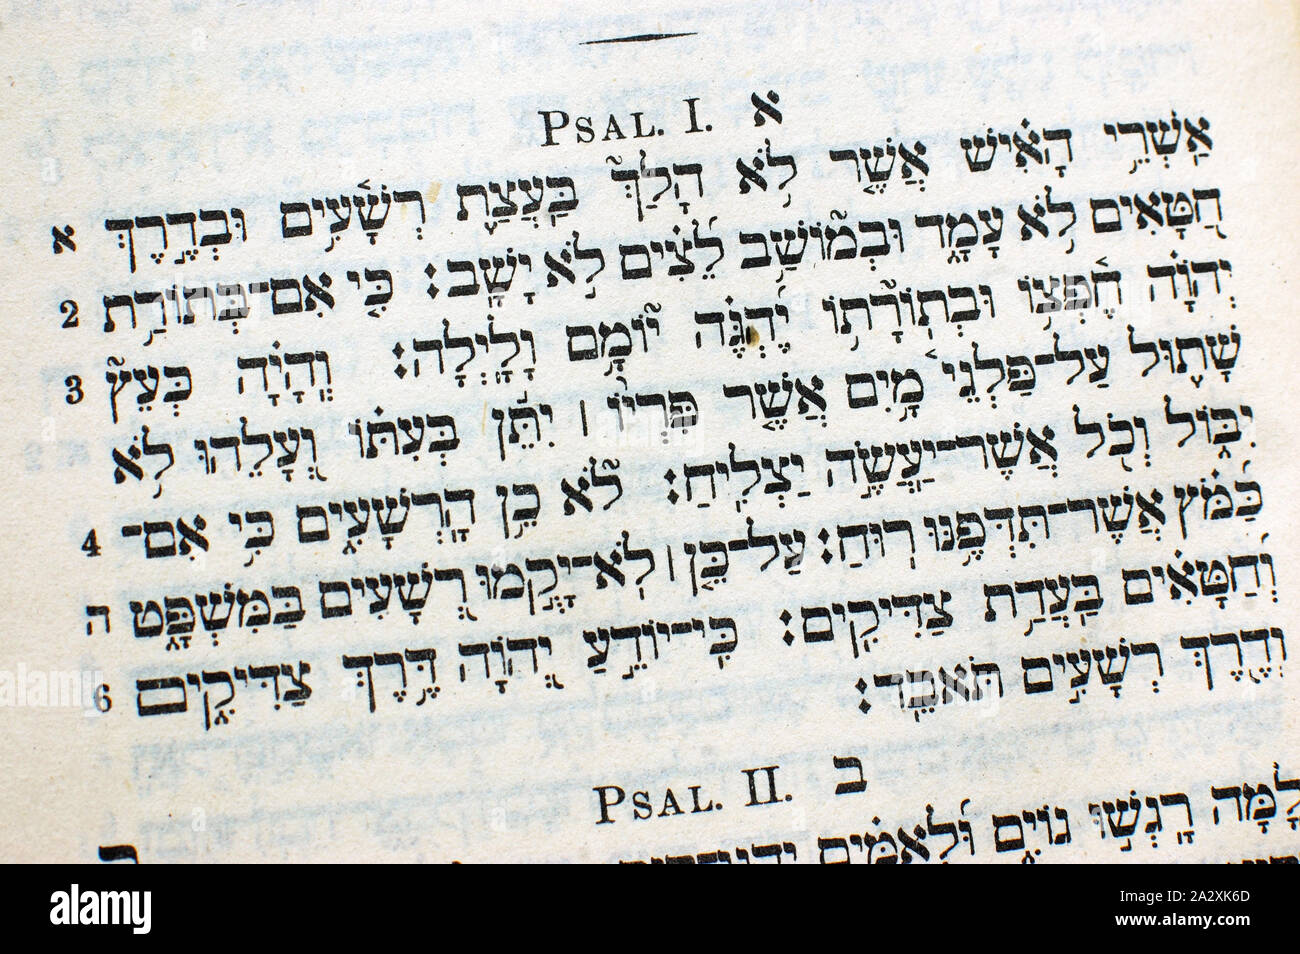 PSAL. I. א
א אַֽשְׁרֵ֥י הָאִ֗ישׁ אֲשֶׁ֤ר לֹ֥א הָלַךְ֮ בַּעֲצַ֪ת רְשָׁ֫עִ֥ים וּבְדֶ֣רֶךְ
חַ֭טָּאִים לֹ֥א עָמָ֑ד וּבְמוֹשַׁ֥ב לֵ֝צִ֗ים לֹ֣א יָשָֽׁב׃ 2 כִּ֤י אִם־בְּתוֹרַ֥ת
יְהוָ֗ה חֶ֫פְצ֥וֹ וּֽבְתוֹרָת֥וֹ יֶהְגֶּ֗ה יוֹמָ֥ם וָלָֽיְלָה׃ 3 וְֽהָיָ֗ה כְּעֵץ֮
שָׁת֪וּל עַֽל־פַּלְגֵ֫י מָ֥יִם אֲשֶׁ֤ר פִּרְי֨וֹ ׀ יִתֵּ֬ן בְּעִתּ֗וֹ וְעָלֵ֥הוּ לֹֽא
יִבּ֑וֹל וְכֹ֖ל אֲשֶׁר־יַעֲשֶׂ֣ה יַצְלִֽיחַ׃ 4 לֹא־ כֵ֥ן הָרְשָׁעִ֑ים כִּ֥י אִם־
כַּ֝מֹּ֗ץ אֲֽשֶׁר־תִּדְּפֶ֥נּוּ רֽוּחַ׃ ה עַל־כֵּ֤ן ׀ לֹא־יָקֻ֣מוּ רְ֭שָׁעִים בַּמִּשְׁפָּ֑ט
וְ֝חַטָּאִ֗ים בַּעֲדַ֥ת צַדִּיקִֽים׃ 6 כִּֽי־יוֹדֵ֣עַ יְ֭הוָה דֶּ֣רֶךְ צַדִּיקִ֑ים
וְדֶ֖רֶךְ רְשָׁעִ֣ים תֹּאבֵֽד׃
PSAL. II. ב
לָ֭מָּה רָגְשׁ֣וּ גוֹיִ֑ם וּ֝לְאֻמִּ֗ים
alamy
Image ID: 2A2XK6D
www.alamy.com